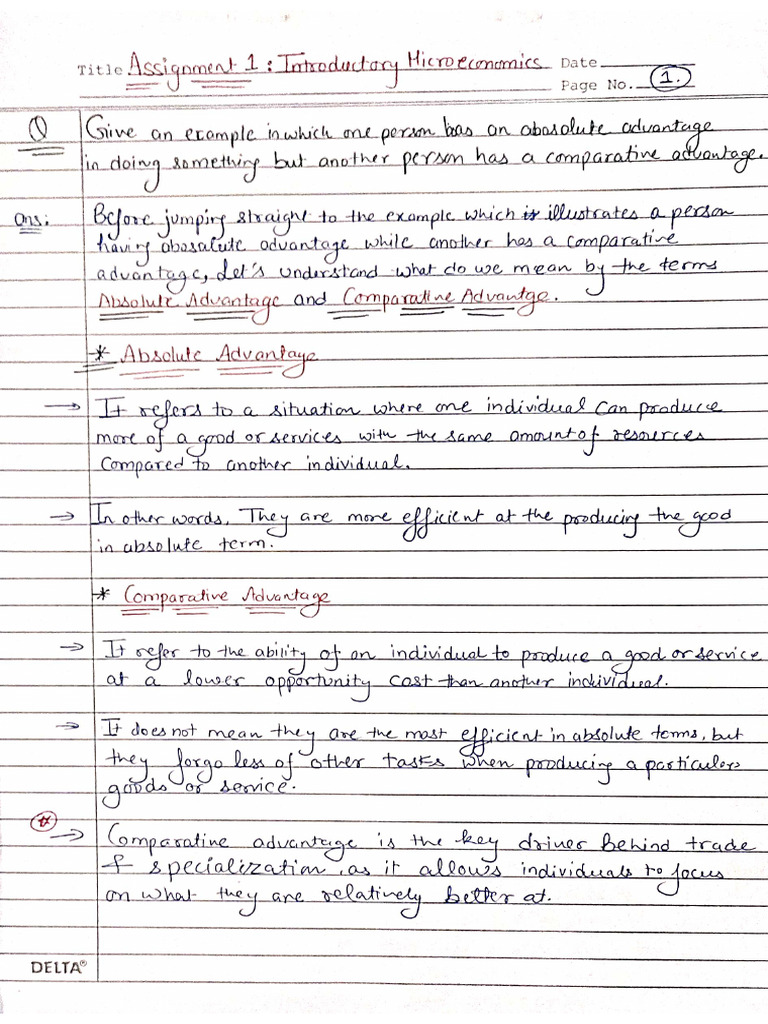 Title Assignment 1 : Introductory Microeconomics Date
Page No. 1.
Q Give an example in which one person has an abosalute advantage
in doing something but another person has a comparative advantage.
Ans: Before jumping straight to the example which illustrates a person
having abosalute advantage while another has a comparative
advantage, Let's understand what do we mean by the terms
Absolute Advantage and Comparative Advantge.
* Absolute Advantage
→ It refers to a situation where one individual can produce
more of a good or services with the same amount of resources
compared to another individual.
→ In other words, They are more efficient at the producing the good
in absolute term.
* Comparative Advantage
→ It refer to the ability of an individual to produce a good or service
at a lower opportunity cost than another individual.
→ It does not mean they are the most efficient in absolute terms, but
they forgo less of other tasks when producing a particulars
goods or service.
→ Comparative advantage is the key driver behind trade
& specialization, as it allows individuals to focus
on what they are relatively better at.
DELTA®